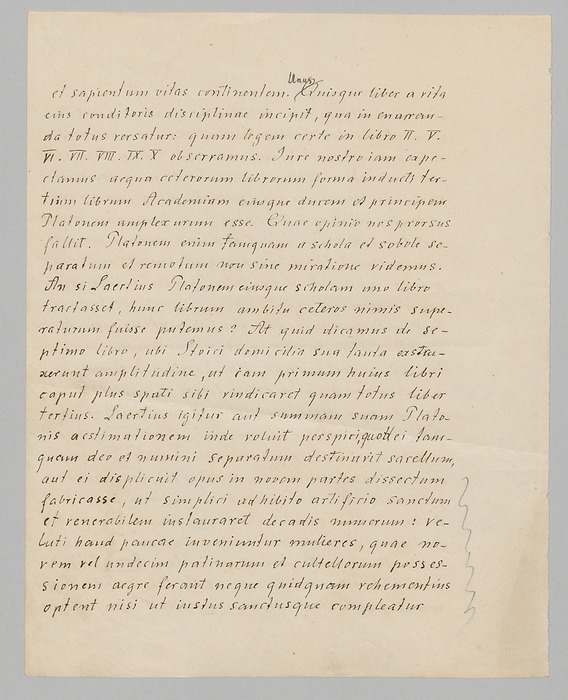 et sapientum vitas continentem. Quisque liber a vita
eius conditoris disciplinae incipit, qua in enarran-
da totus versatur: quam legem certe in libro II. V.
VI. VII. VIII. IX. X observamus. Iure nostro iam expe-
ctamus aequa ceterorum librorum forma inducti ter-
tium librum Academiam eiusque ducem et principem
Platonem amplexurum esse. Quae opinio nos prorsus
fallit. Platonem enim tamquam a schola et sobole se-
paratum et remotum non sine miratione videmus.
An si Laertius Platonem eiusque scholam uno libro
tractasset, hunc librum ambitu ceteros nimis supe-
raturum fuisse putemus? At quid dicamus de se-
ptimo libro, ubi Stoici domicilia sua tanta exstru-
xerunt amplitudine, ut iam primum huius libri
caput plus spati sibi vindicaret quam totus liber
tertius. Laertius igitur aut summam suam Plato-
nis aestimationem inde voluit perspici, quod ei tam-
quam deo et numini separatum destinavit sacellum,
aut ei displicuit opus in novem partes dissectum
fabricasse, ut simplici adhibito artificio sanctum
et venerabilem instauraret decadis numerum: ve-
luti haud paucae inveniuntur mulieres, quae no-
vem vel undecim patinarum et cultellorum posses-
sionem aegre ferant neque quidquam vehementius
optent nisi ut iustus sanctusque compleatur